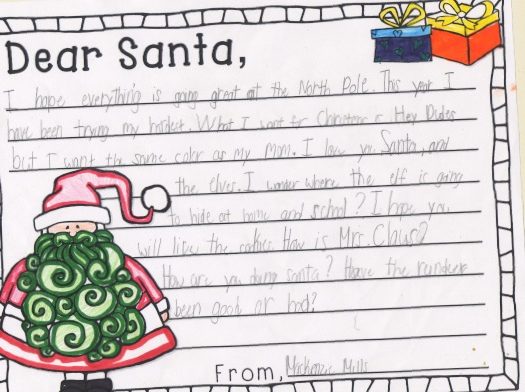 Dear Santa,
I hope everything is going great at the North Pole. This year I
have been trying my hardest. What I want for Christmas is Hey Dudes
but I want the same color as my mom. I love you Santa, and
the elves. I wonder where the elf is going
to hide at home and school? I hope you
will like the cookies. How is Mrs. Claus?
How are you doing santa? Have the reindeers
been good or bad?
From, Mckenzie Mills